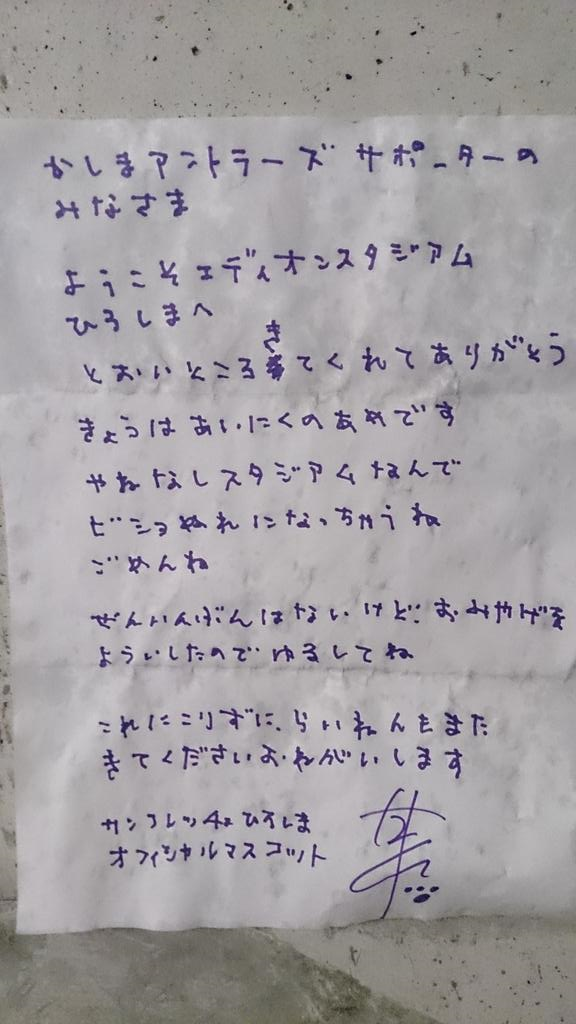 かしまアントラーズ サポーターの
みなさま
ようこそエディオンスタジアム
ひろしまへ
とおいところきてくれてありがとう
きょうはあいにくのあめです
やねなしスタジアムなんで
ビショぬれになっちゃうね
ごめんね
ぜんいんぶんはないけど、おみやげを
よういしたのでゆるしてね
これにこりずに、らいねんもまた
きてくださいおねがいします
サンフレッチェひろしま
オフィシャルマスコット